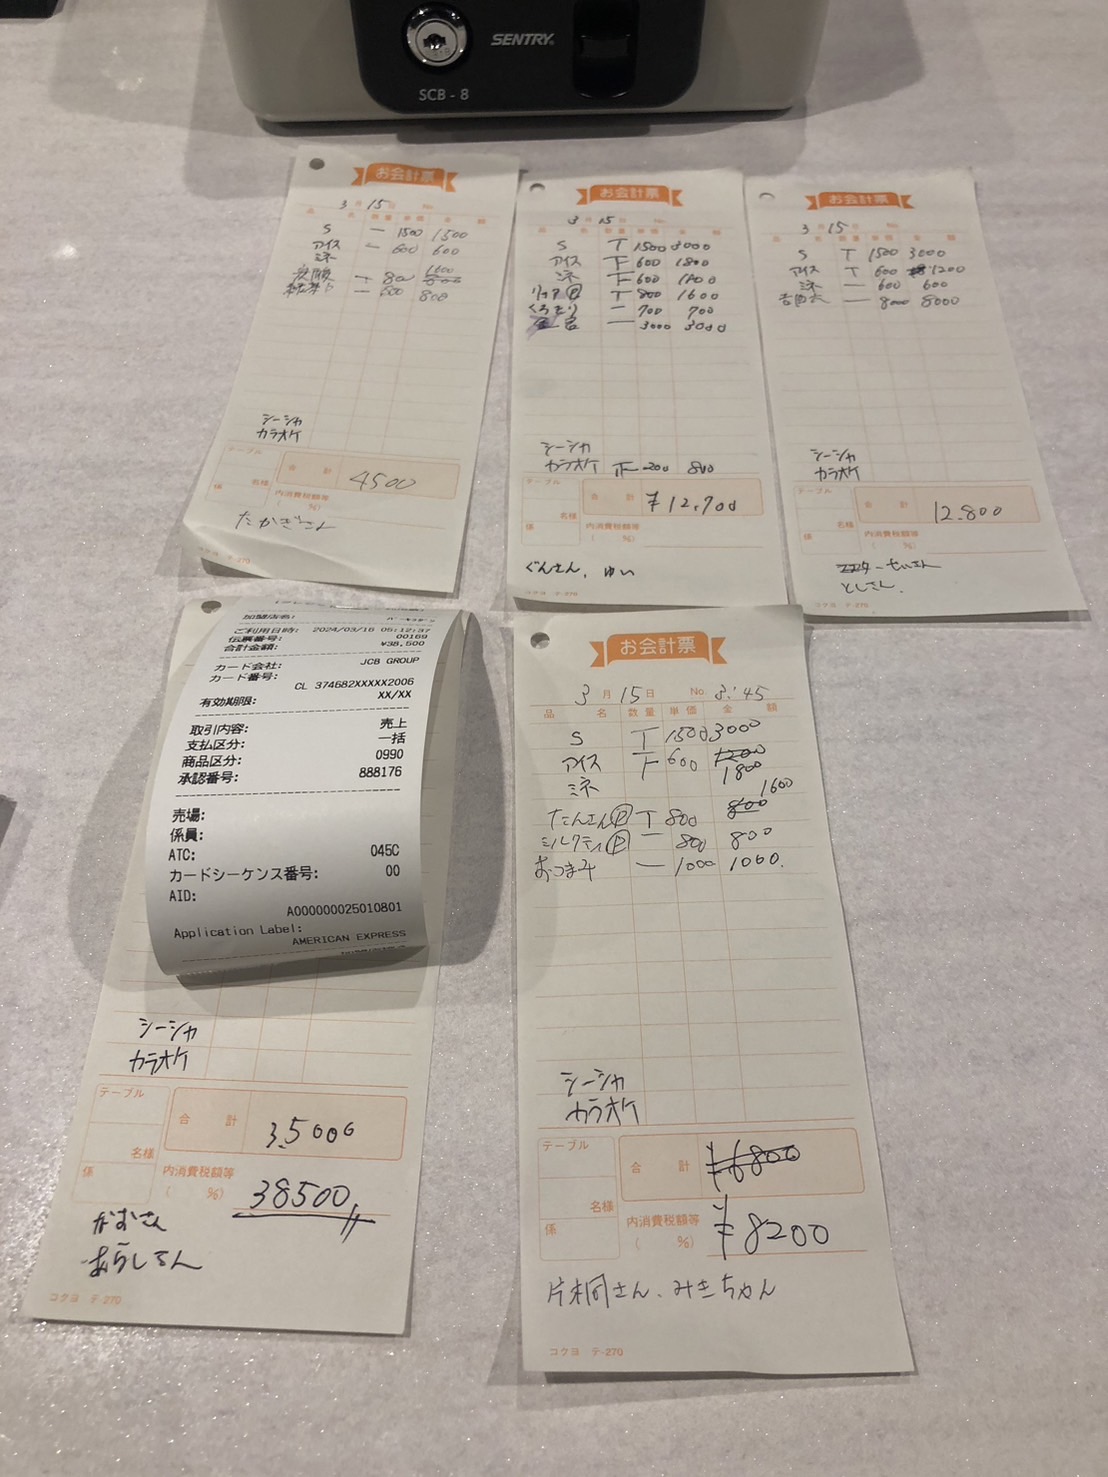 SENTRY
SCB-8
お会計票
3月15日
品名 数量 単価 金額
S 一 1500 1500
アイス 一 600 600
ミネ
T 800 1600
一 800 800
シーシャ
カラオケ
テーブル
合計 4500
名様
係
内消費税額等
( %)
たかぎさん
コクヨ テ-270
お会計票
3月15日 No.
品名 数量 単価 金額
S T 1500 3000
アイス 下 600 1800
ミネ 下 600 1800
T 800 1600
一 700 700
一 3000 3000
シーシャ
カラオケ 正 200 800
テーブル
合計 ¥12,700
名様
係
内消費税額等
( %)
ぐんさん、ゆい
コクヨ テ-270
お会計票
3月15日 No.
品名 数量 単価 金額
S T 1500 3000
アイス T 600 1200
ミネ 一 600 600
一 8000 8000
シーシャ
カラオケ
テーブル
合計 12.800
名様
係
内消費税額等
( %)
としさん.
コクヨ テ-270
加盟店名:
ご利用日時: 2024/03/16 05:12:37
伝票番号: 00169
合計金額: ¥38,500
カード会社: JCB GROUP
カード番号:
CL 374682XXXXX2006
有効期限: XX/XX
取引内容: 売上
支払区分: 一括
商品区分: 0990
承認番号: 888176
売場:
係員:
ATC: 045C
カードシーケンス番号: 00
AID:
A000000025010801
Application Label:
AMERICAN EXPRESS
シーシャ
カラオケ
テーブル
合計 35000
名様
係
内消費税額等
( %)
38500
かずさん
あらしさん
コクヨ テ-270
お会計票
3月15日 No 3:45
品名 数量 単価 金額
S T 1500 3000
アイス 下 600 1200
ミネ 1800
1600
たんさんⓅ T 800 800
ミルクティⓅ 一 800 800
おつまみ 一 1000 1000.
シーシャ
カラオケ
テーブル
合計 ¥6800
名様
係
内消費税額等
( %)
¥8200
片桐さん、みきちゃん
コクヨ テ-270